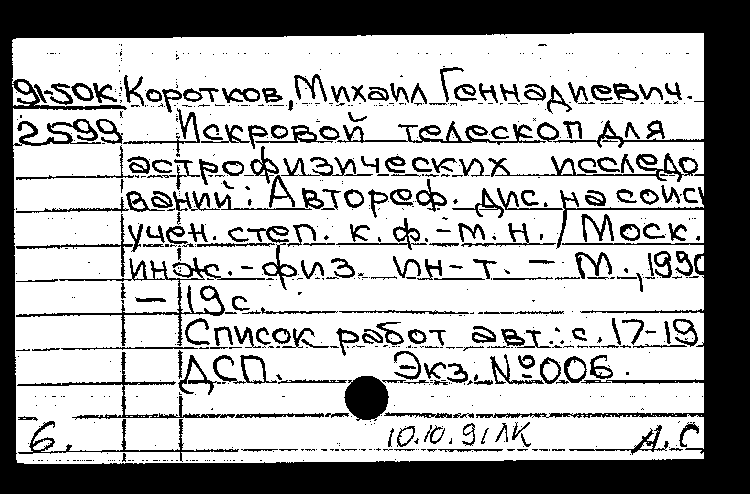 91-50К Коротков, Михаил Геннадиевич.
2599 Искровой телескоп для
астрофизических исследо
ваний: Автореф. дис. на соиск
учен. степ. к. ф.-м. н. / Моск.
инж.-физ. ин-т. - М., 1990
- 19 с.
Список работ авт.: с. 17-19
ДСП. Экз. №006.
6. 10.10.91 ЛК А.С